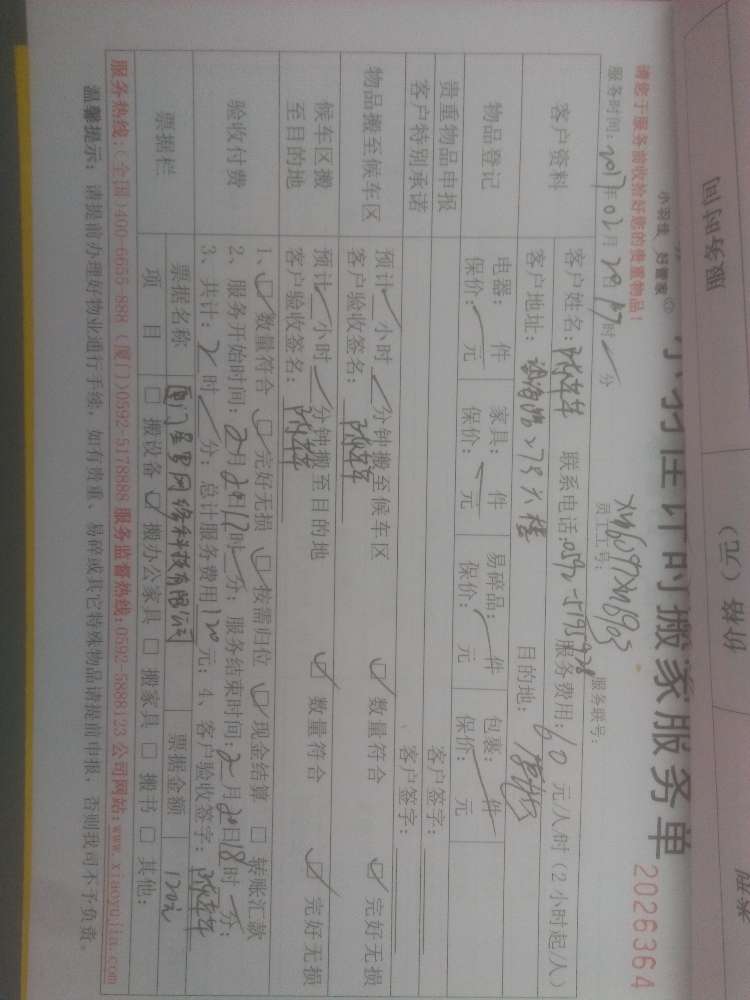 服务时间
价格（元）
小羽佳 好管家
计时搬家服务单
2026364
请您于服务前收拾好您的贵重物品！
员工工号：
服务联号：
服务时间：2017年02月20日17时 分
客户资料
客户姓名： 联系电话：0592-5195928 服务费用：60 元/人/时（2小时起/人）
客户地址： 目的地：
物品登记
电器： 件 家具： 件 易碎品： 件 包裹： 件
保价： 元 保价： 元 保价： 元 保价： 元
贵重物品申报 客户签字：
客户特别承诺 客户签字：
物品搬至候车区
预计 小时 分钟搬至候车区 数量符合 完好无损
客户验收签名：
候车区搬至目的地
预计 小时 分钟搬至目的地 数量符合 完好无损
客户验收签名：
验收付费
1、 数量符合 完好无损 按需归位 现金结算 转账汇款
2、服务开始时间：2月20日17时 分；服务结束时间：2月20日18时 分；
3、共计：2时 分；总计服务费用120元；4、客户验收签字：
票据栏
票据名称 厦门 网络科技有限公司 票据金额 120元
项 目 搬设备 搬办公家具 搬家具 搬书 其他：
服务热线：(全国)400-6655-888 (厦门)0592-5178888 服务监督热线：0592-5888123 公司网站：www.xiaoyujia.com
温馨提示：请提前办理好物业通行手续，如有贵重、易碎或其它特殊物品请提前申报，否则我司不予负责。